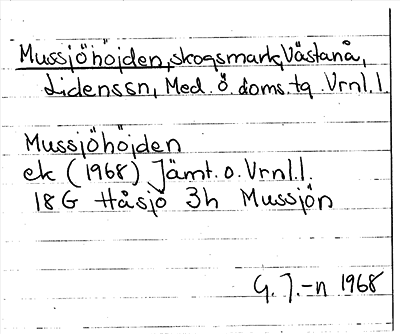 Mussjöhöjden, skogsmark, Västanå,
Lidenssn, Med. ö. doms. tg. Vrnl. l.
Mussjöhöjden
ek (1968) Jämt. o. Vrnl. l.
18G Håsjö 3h Mussjön
G. J.-n 1968